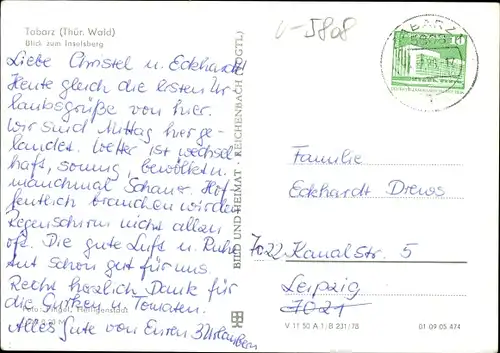 Tabarz (Thür. Wald)
Blick zum Inselsberg
Liebe Christel u. Eckhardt
Heute gleich die ersten Ur-
laubsgrüße von hier.
Wir sind Mittag hier ge-
landet. Wetter ist wechsel
haft, sonnig bewölkt u.
manchmal Schauer. Hof-
fentlich brauchen wir den
Regenschirm nicht allzu
oft. Die gute Luft u. Ruhe
tut schon gut für uns.
Recht herzlich Dank für
die Gurken u. Tomaten.
Alles Gute von Euren 3 Urlaubern
Heiligenstadt
BILD UND HEIMAT · REICHENBACH (VOGTL)
V-5808
TABARZ
5808
Familie
Eckhardt Drews
7022 Kanalstr. 5
Leipzig
7021
V 11 50 A 1/B 231/78
01 09 05 474